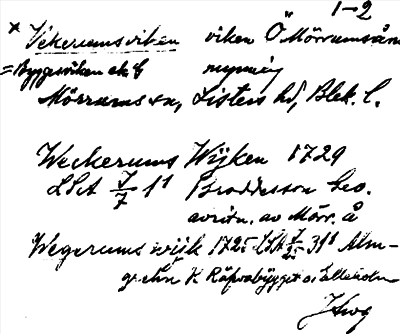 1-2
* Vekerumsviken viken Ö Mörrumsån
= Byggesviken ek 6 mynning
Mörrums sn, Listers hd, Blek. l.
Weckerums Wijken 1729
LSA 7/7 11 Broddesson beo.
avritn. av Mörr. å
Wegerums wijk 1725 LSA 31 Alm-
gren K Räfvabygget o.